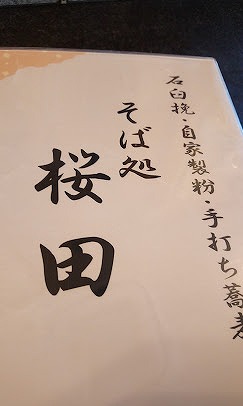 石臼挽・自家製粉・手打ち蕎麦
そば処
桜田